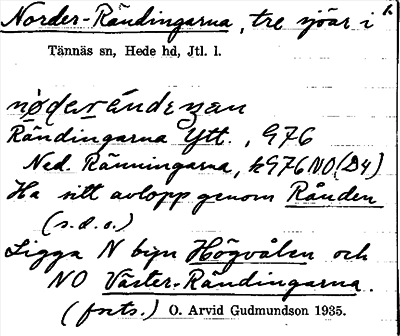 Norder-Rändingarna, tre sjöar i
Tännäs sn, Hede hd, Jtl. l.
Rändingarna Ytt., G76
Ned. Ränningarna, k G76 NO (D4)
Ha sitt avlopp genom Rånden
(s.d.o.)
Ligga N byn Högvålen och
NO Väster-Rändingarna.
(forts.) O. Arvid Gudmundson 1935.